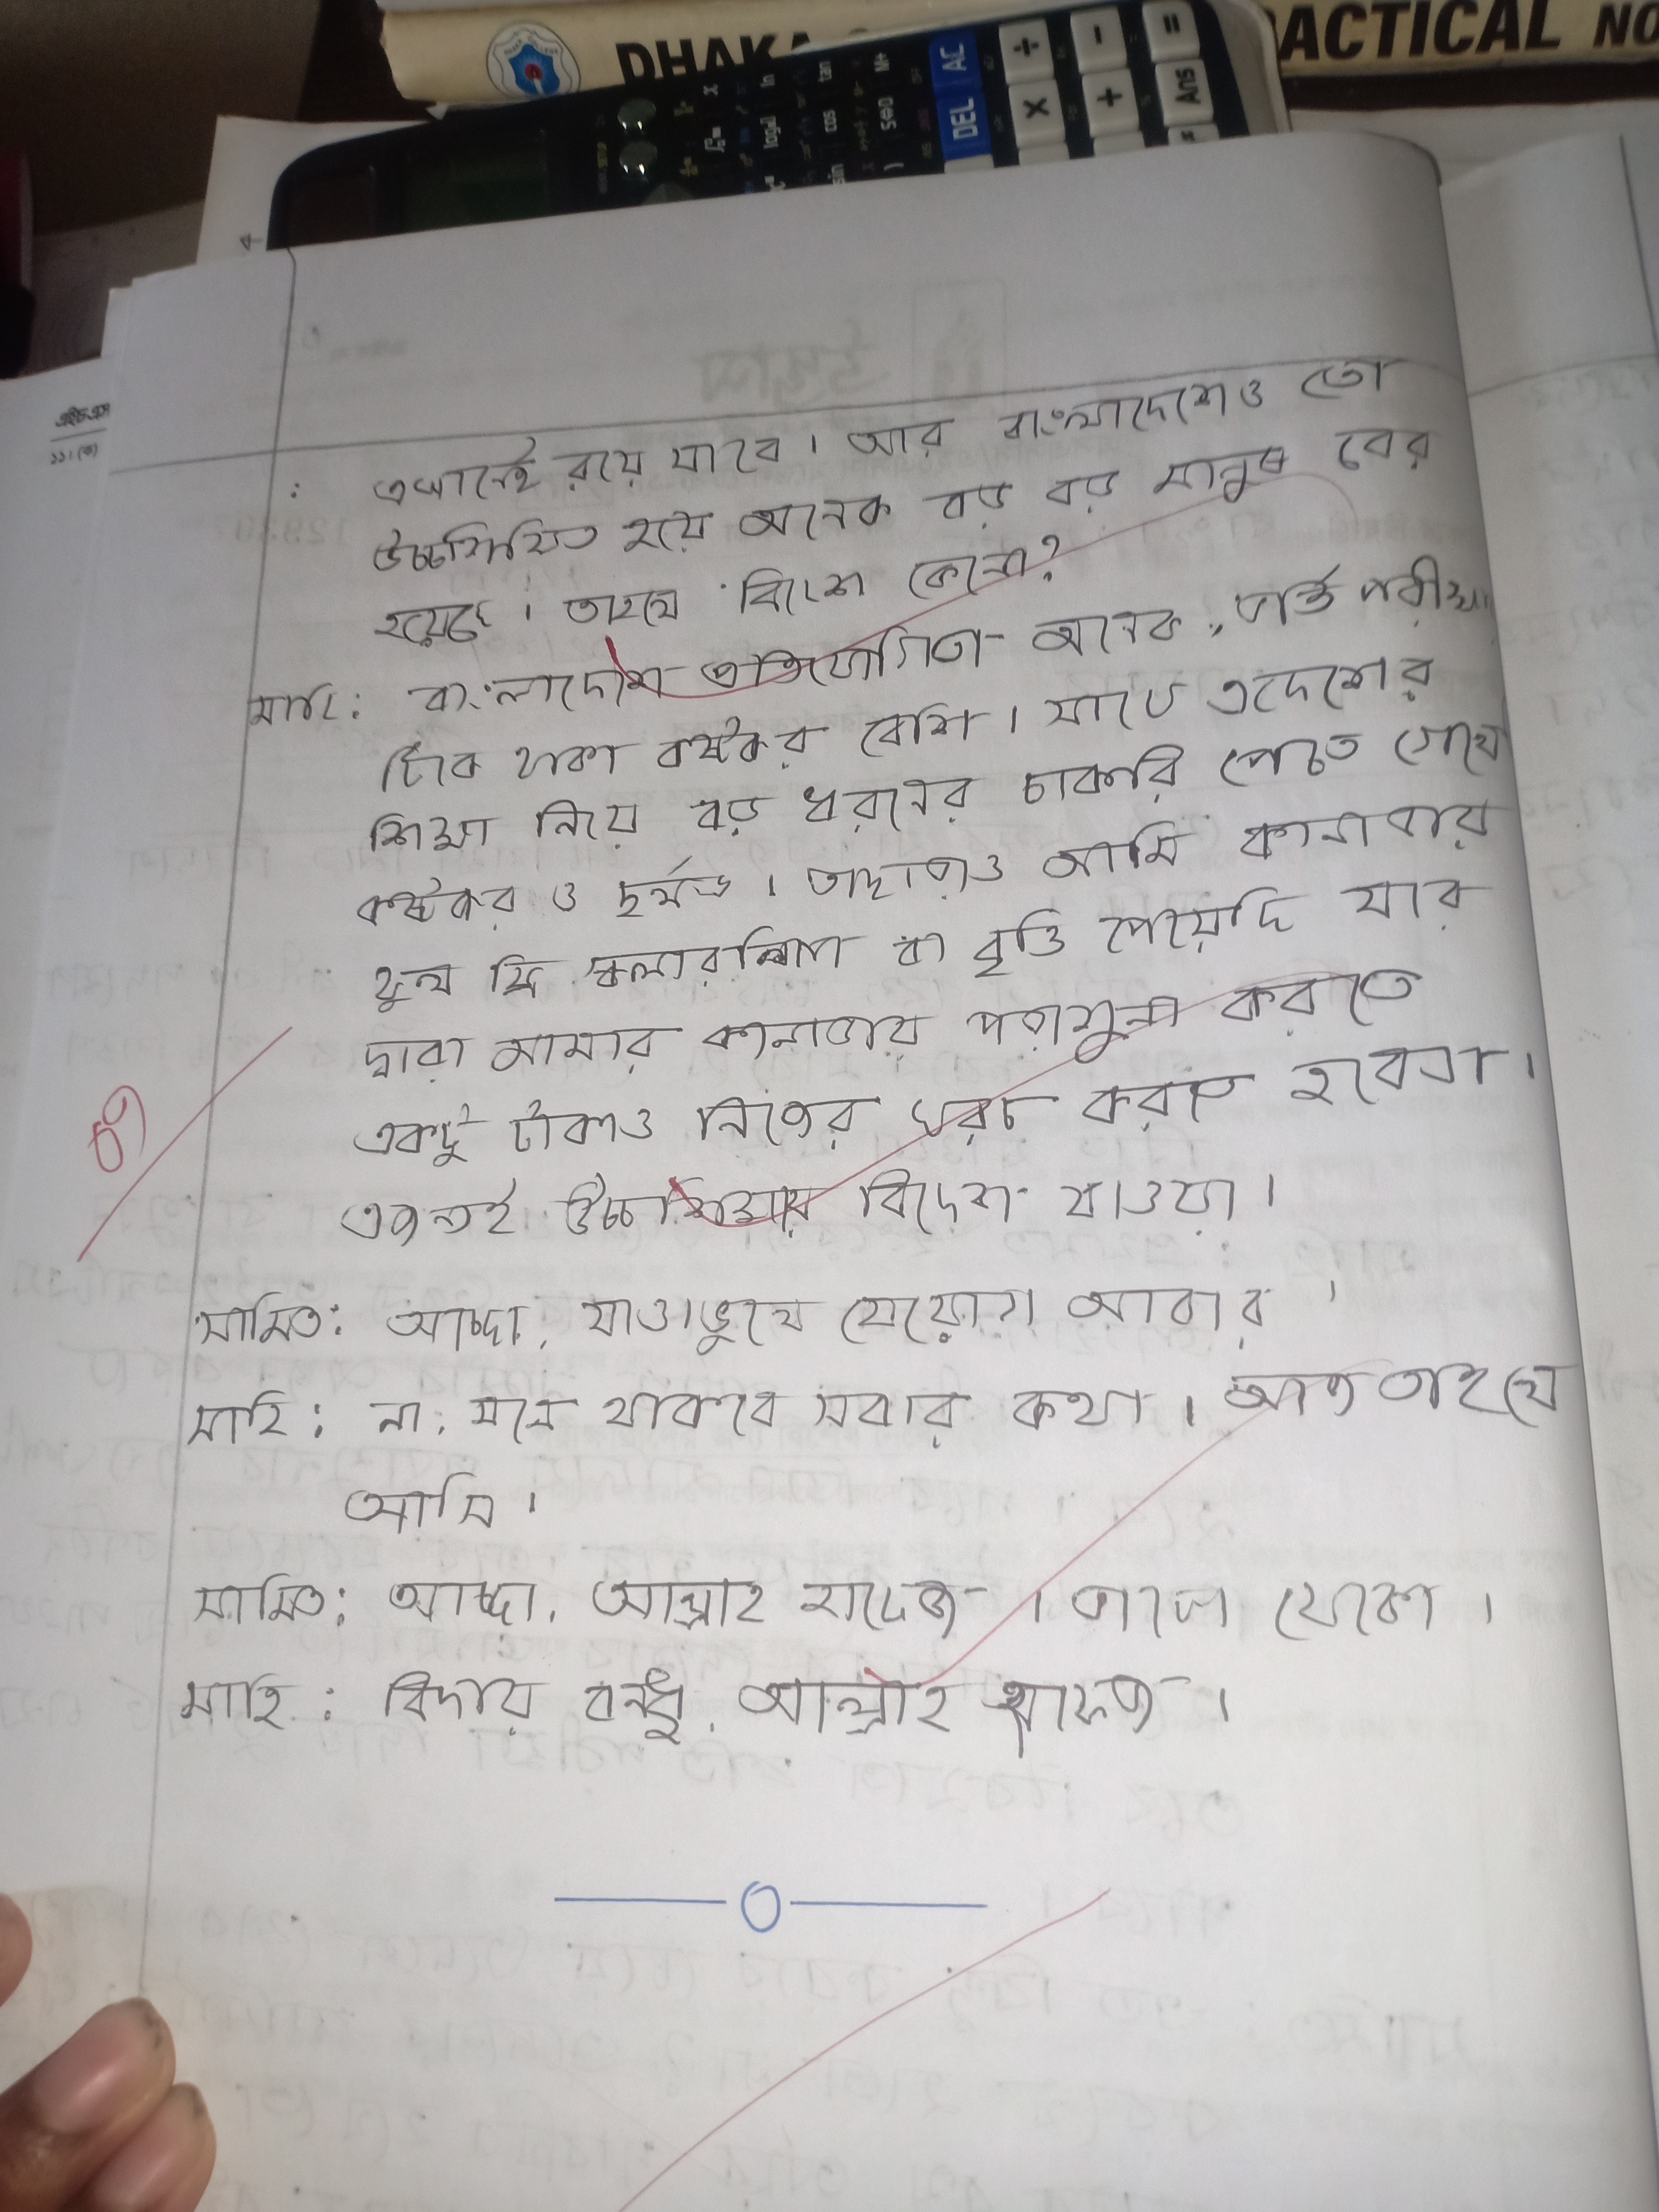 DHAKA
ACTICAL NO
DEL AC
Ans
এইচএস
১১।(ক)
: এখানেই রয়ে যাবে। আর বাংলাদেশেও তো
উচ্চশিক্ষিত হয়ে অনেক বড় বড় মানুষ বের
হয়েছে। তাহলে বিদেশ কেনো?
মাহি: বাংলাদেশে প্রতিযোগিতা অনেক, ভর্তি পরীক্ষা
টিকে থাকা কষ্টকর বেশি। এদেশের
শিক্ষা নিয়ে বড় ধরনের চাকরি পেতে গেলে
কষ্টকর ও দুর্লভ। তাছাড়াও আমি কানাডার
ফুল ফ্রি স্কলারশিপ বা বৃত্তি পেয়েছি যার
দ্বারা আমার কানাডায় পড়াশুনা করতে
একটু টাকাও নিজের খরচ করতে হবেনা।
এজন্যই উচ্চশিক্ষায় বিদেশ যাওয়া।
সামিত: আচ্ছা, আবার।
মাহি: না, মনে থাকবে সবার কথা। আজ তাহলে
আসি।
সামিত: আচ্ছা, আল্লাহ হাফেজ। ভালো থেকো।
মাহি: বিদায় বন্ধু, আল্লাহ হাফেজ।